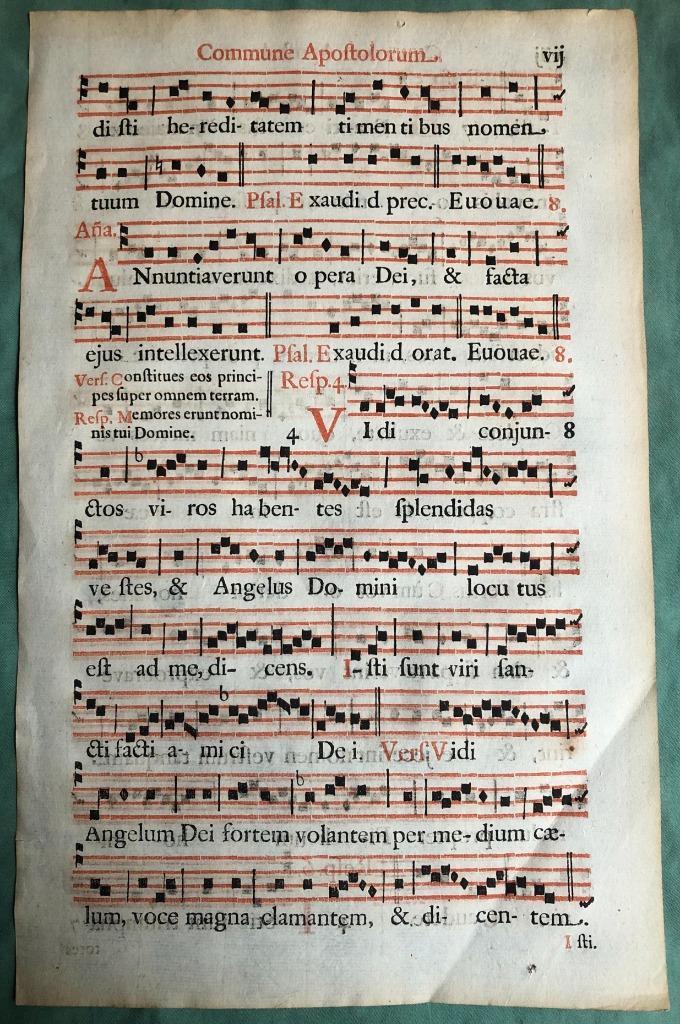 Commune Apoſtolorum. vij
di ſti he- redi- tatem ti men ti bus nomen
tuum Domine. Pſal. E xaudi. d prec. Euouae. 8.
Aña.
ANnuntiaverunt o pera Dei, & facta
ejus intellexerunt. Pſal. Exaudi d orat. Euouae. 8.
Verſ. Conſtitues eos princi-
pes ſuper omnem terram.
Reſp. Memores erunt nomi-
nis tui Domine.
Reſp. 4.
4 VIdi conjun- 8
ctos vi- ros ha ben- tes ſplendidas
ve ſtes, & Angelus Do- mini locu tus
eſt ad me, di- cens. I- ſti ſunt viri ſan-
cti facti a- mi ci De i. Verſ. Vidi
Angelum Dei fortem volantem per me- dium cæ-
lum, voce magna clamantem, & di- cen- tem.
I ſti.